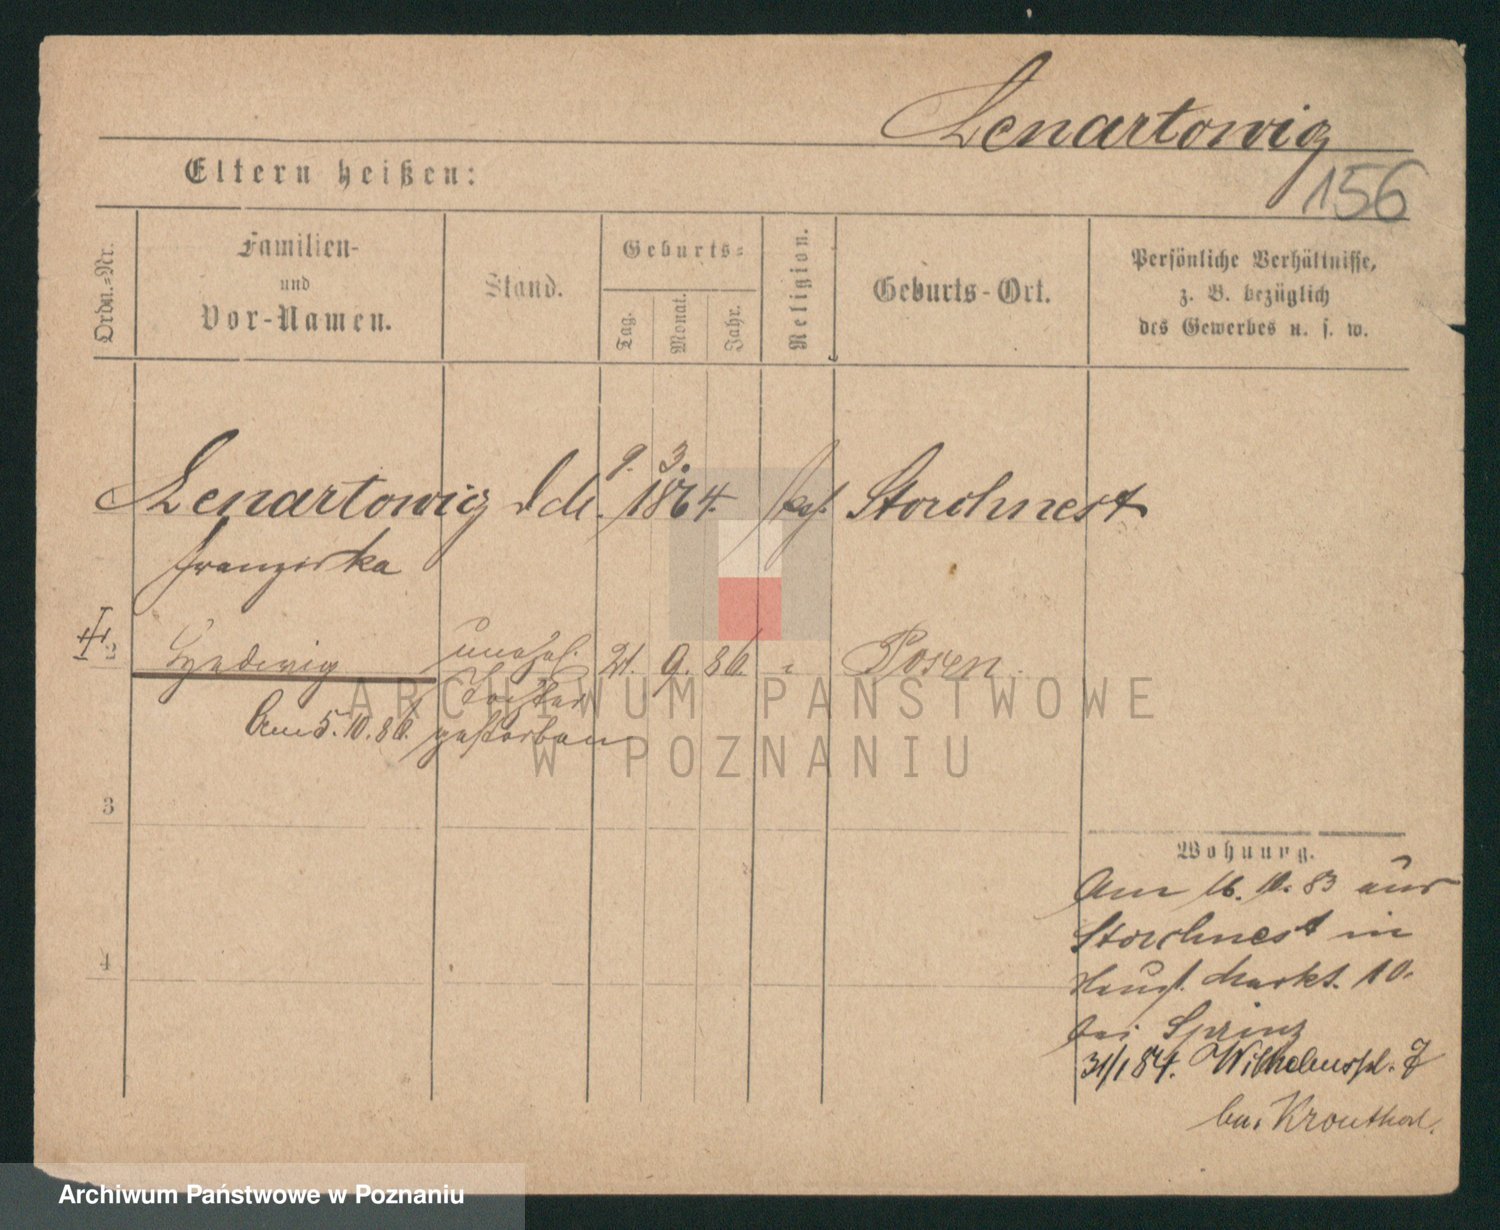 Lenartowicz
156
Eltern heißen:
Ordn.=Nr.
Familien-
und
Vor-Namen.
Stand.
Geburts=
Tag.
Monat.
Jahr.
Religion.
Geburts-Ort.
Persönliche Verhältnisse,
z. B. bezüglich
des Gewerbes u. s. w.
9. 3.
Lenartowicz 1864. Storchnest
Franziska
2 Hedwig unehel. 21. 9. 86. Posen
Tochter
Am 5.10.86. gestorben
3
4
Wohnung.
Am 16. 10. 83 aus
Storchnest in
Markt. 10.
bei Sprinz
31/1 84. Wilhelmspl. 7
bei Kronthal.
ARCHIWUM PAŃSTWOWE
W POZNANIU
Archiwum Państwowe w Poznaniu